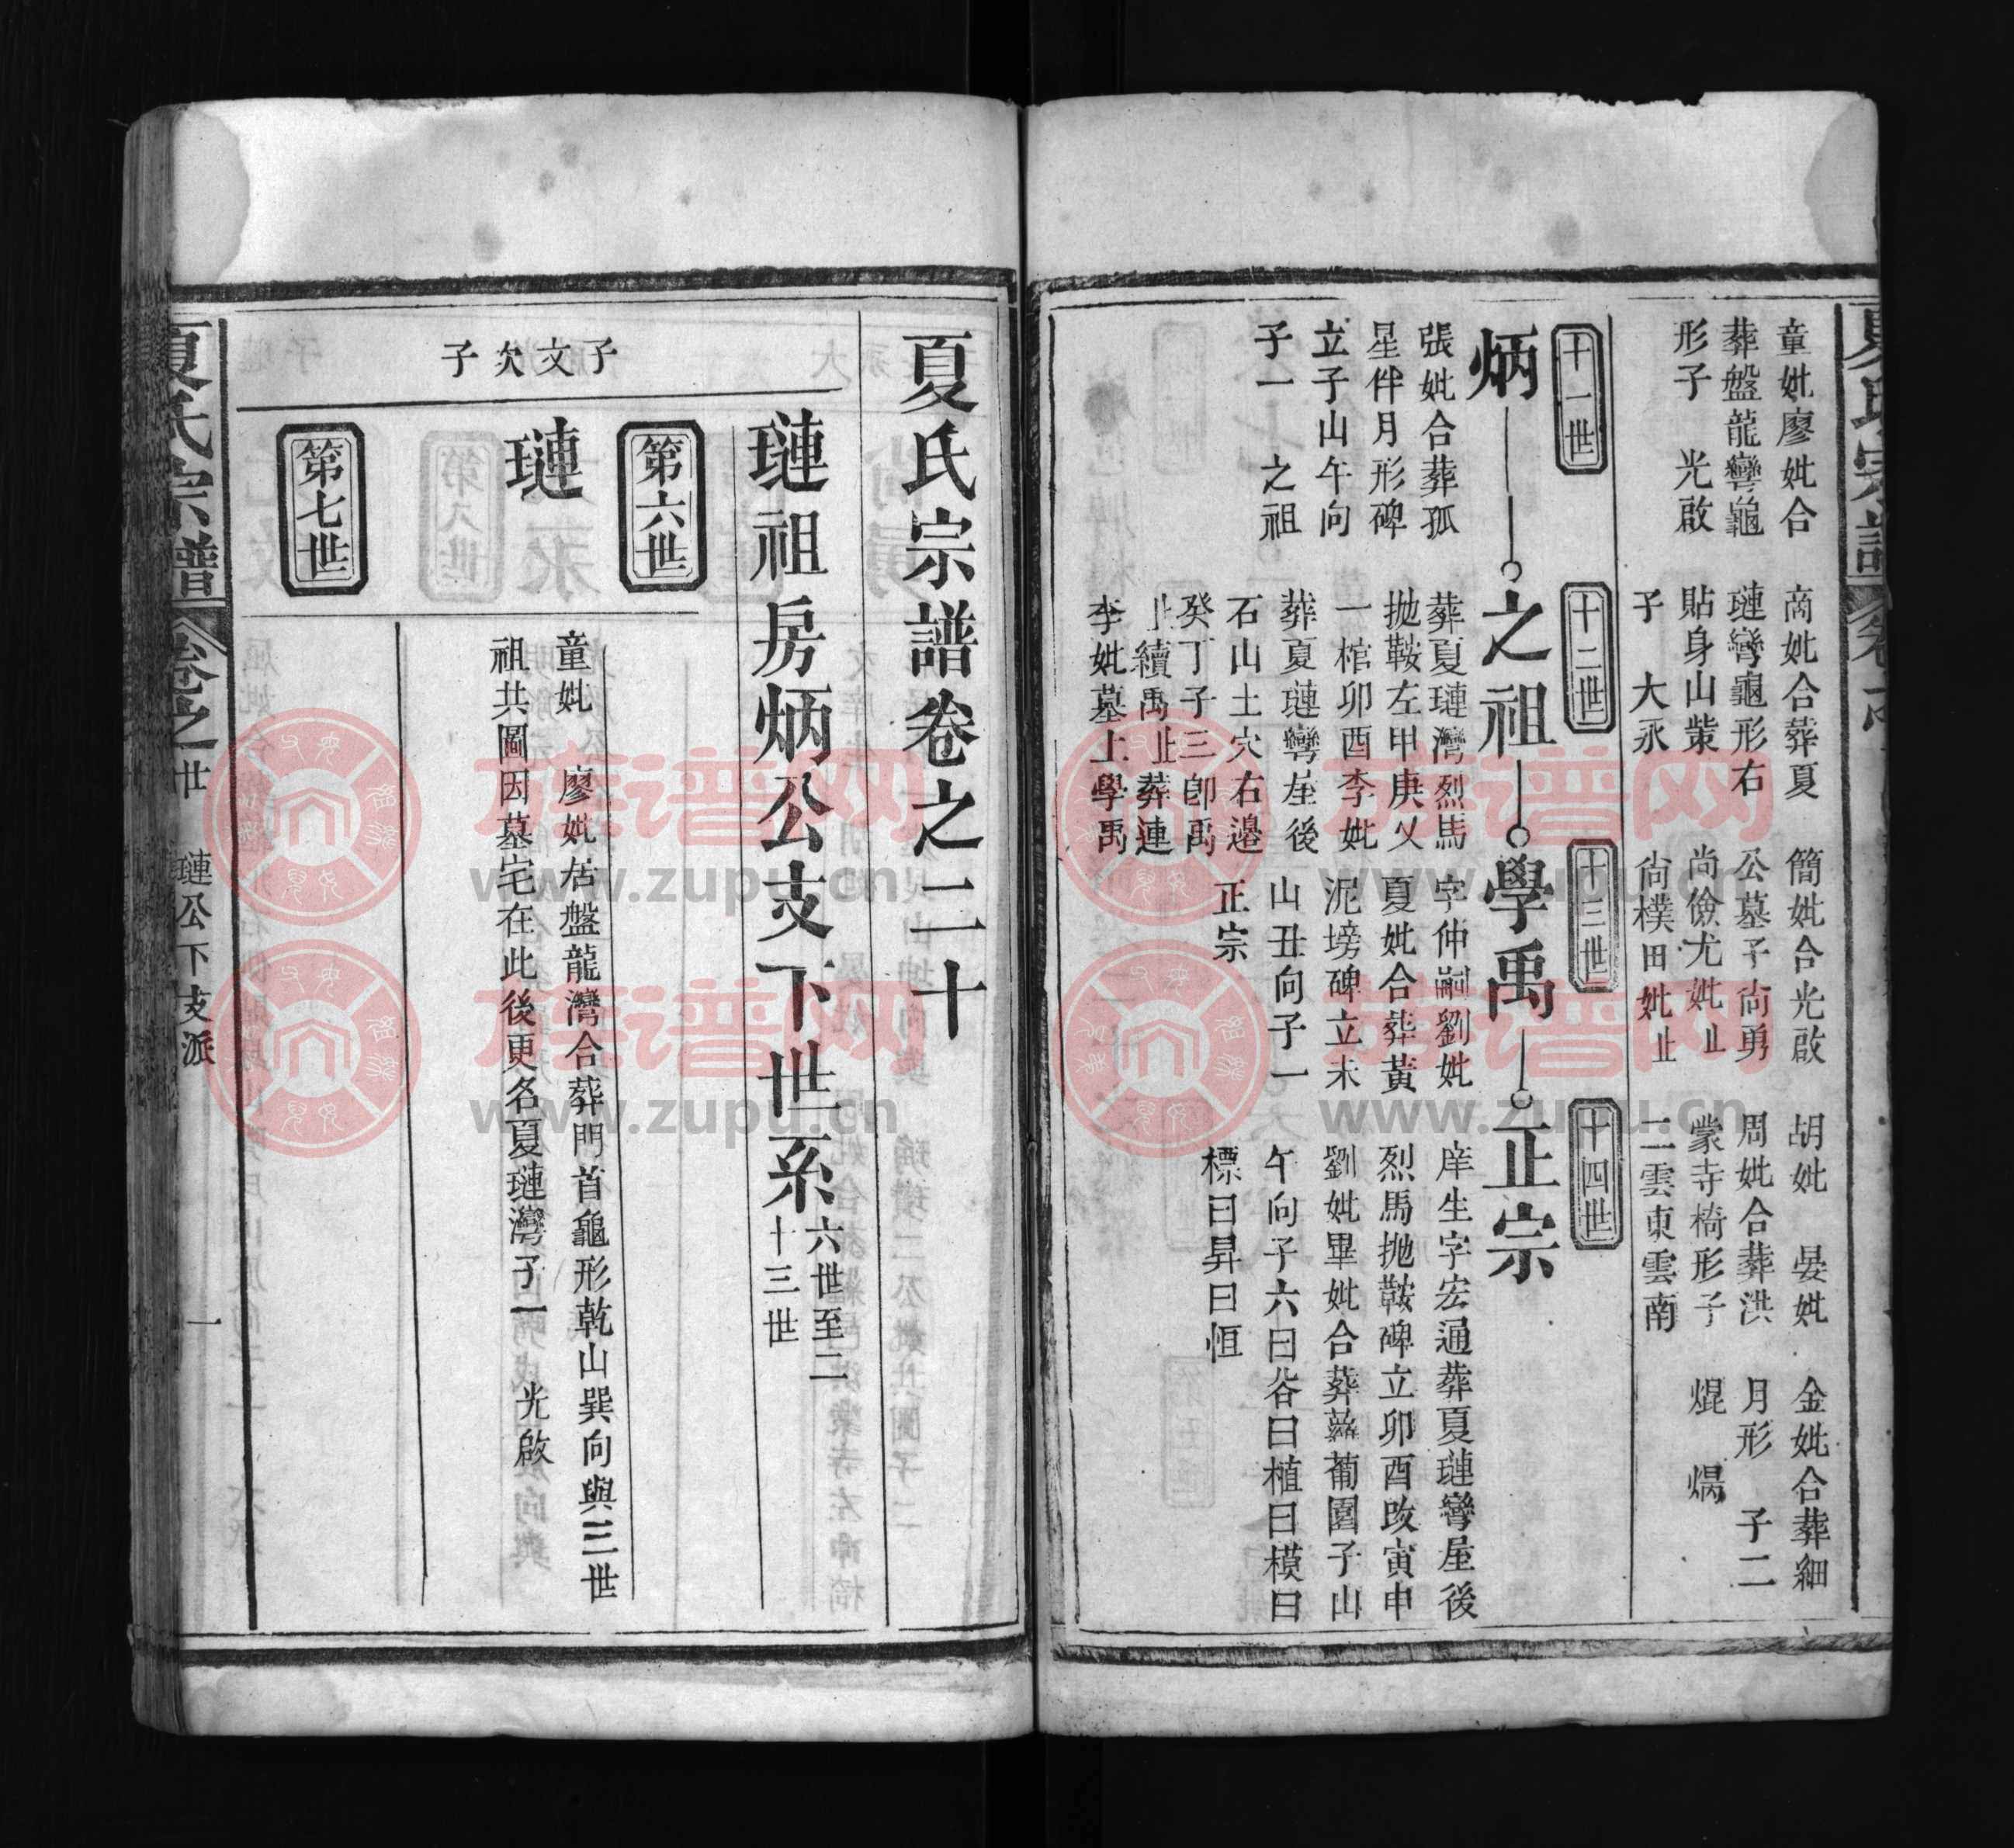 夏氏宗譜
童妣廖妣合
葬盤龍彎龜
形子 光啟
商妣合葬夏
璉彎龜形右
貼身山葉
子 大永
簡妣合光啟
公墓子尚勇
尚儉尤妣止
尚樸田妣止
胡妣 晏妣
周妣合葬洪
蒙寺椅形子
二雲東雲南
金妣合葬細
月形 子二
焜 煬
十一世
十二世
十三世
十四世
炳
之祖
學禹
正宗
張妣合葬孤
星伴月形碑
立子山午向
子一 之祖
葬夏璉灣烈馬
拋鞍左甲庚乂
一棺卯酉李妣
葬夏璉彎屋後
石山土穴右邊
癸丁子三卽禹
止續禹止葬連
李妣墓上學禹
字仲嗣劉妣
夏妣合葬黃
泥塝碑立未
山丑向子一
正宗
庠生字宏通葬夏璉彎屋後
烈馬拋鞍碑立卯酉改寅申
劉妣畢妣合葬蘿蔔園子山
午向子六曰谷曰植曰模曰
標曰昇曰恒
夏氏宗譜卷之二十
璉祖房炳公支下世系
六世至二
十三世
子文欠子
第六世
璉
第七世
童妣 廖妣居盤龍灣合葬門首龜形乾山巽向與三世
祖共圖因墓宅在此後更名夏璉灣子一 光啟
夏氏宗譜
卷之廿
璉公下支派
一
族谱网
www.zupu.cn
族谱网
www.zupu.cn
族谱网
www.zupu.cn
族谱网
www.zupu.cn